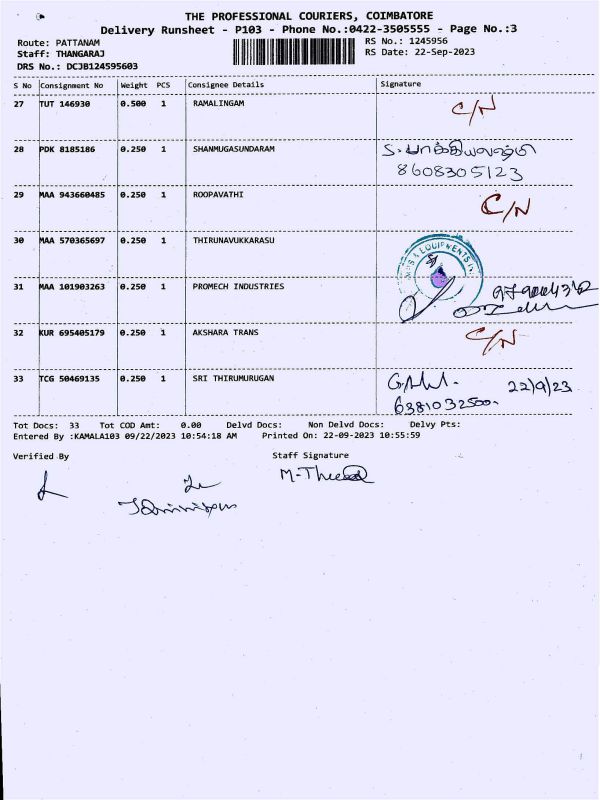 THE PROFESSIONAL COURIERS, COIMBATORE
Delivery Runsheet - P103 - Phone No.:0422-3505555 - Page No.:3
Route: PATTANAM RS No.: 1245956
Staff: THANGARAJ RS Date: 22-Sep-2023
DRS No.: DCJB124595603
S No Consignment No Weight PCS Consignee Details Signature
27 TUT 146930 0.500 1 RAMALINGAM C/N
28 PDK 8185186 0.250 1 SHANMUGASUNDARAM S. பாக்கியலஷ்மி
8608305123
29 MAA 943660485 0.250 1 ROOPAVATHI C/N
30 MAA 570365697 0.250 1 THIRUNAVUKKARASU
EQUIPMENTS
31 MAA 101903263 0.250 1 PROMECH INDUSTRIES
32 KUR 695405179 0.250 1 AKSHARA TRANS C/N
33 TCG 50469135 0.250 1 SRI THIRUMURUGAN 22/9/23
6381032500
Tot Docs: 33 Tot COD Amt: 0.00 Delvd Docs: Non Delvd Docs: Delvy Pts:
Entered By :KAMALA103 09/22/2023 10:54:18 AM Printed On: 22-09-2023 10:55:59
Verified By Staff Signature